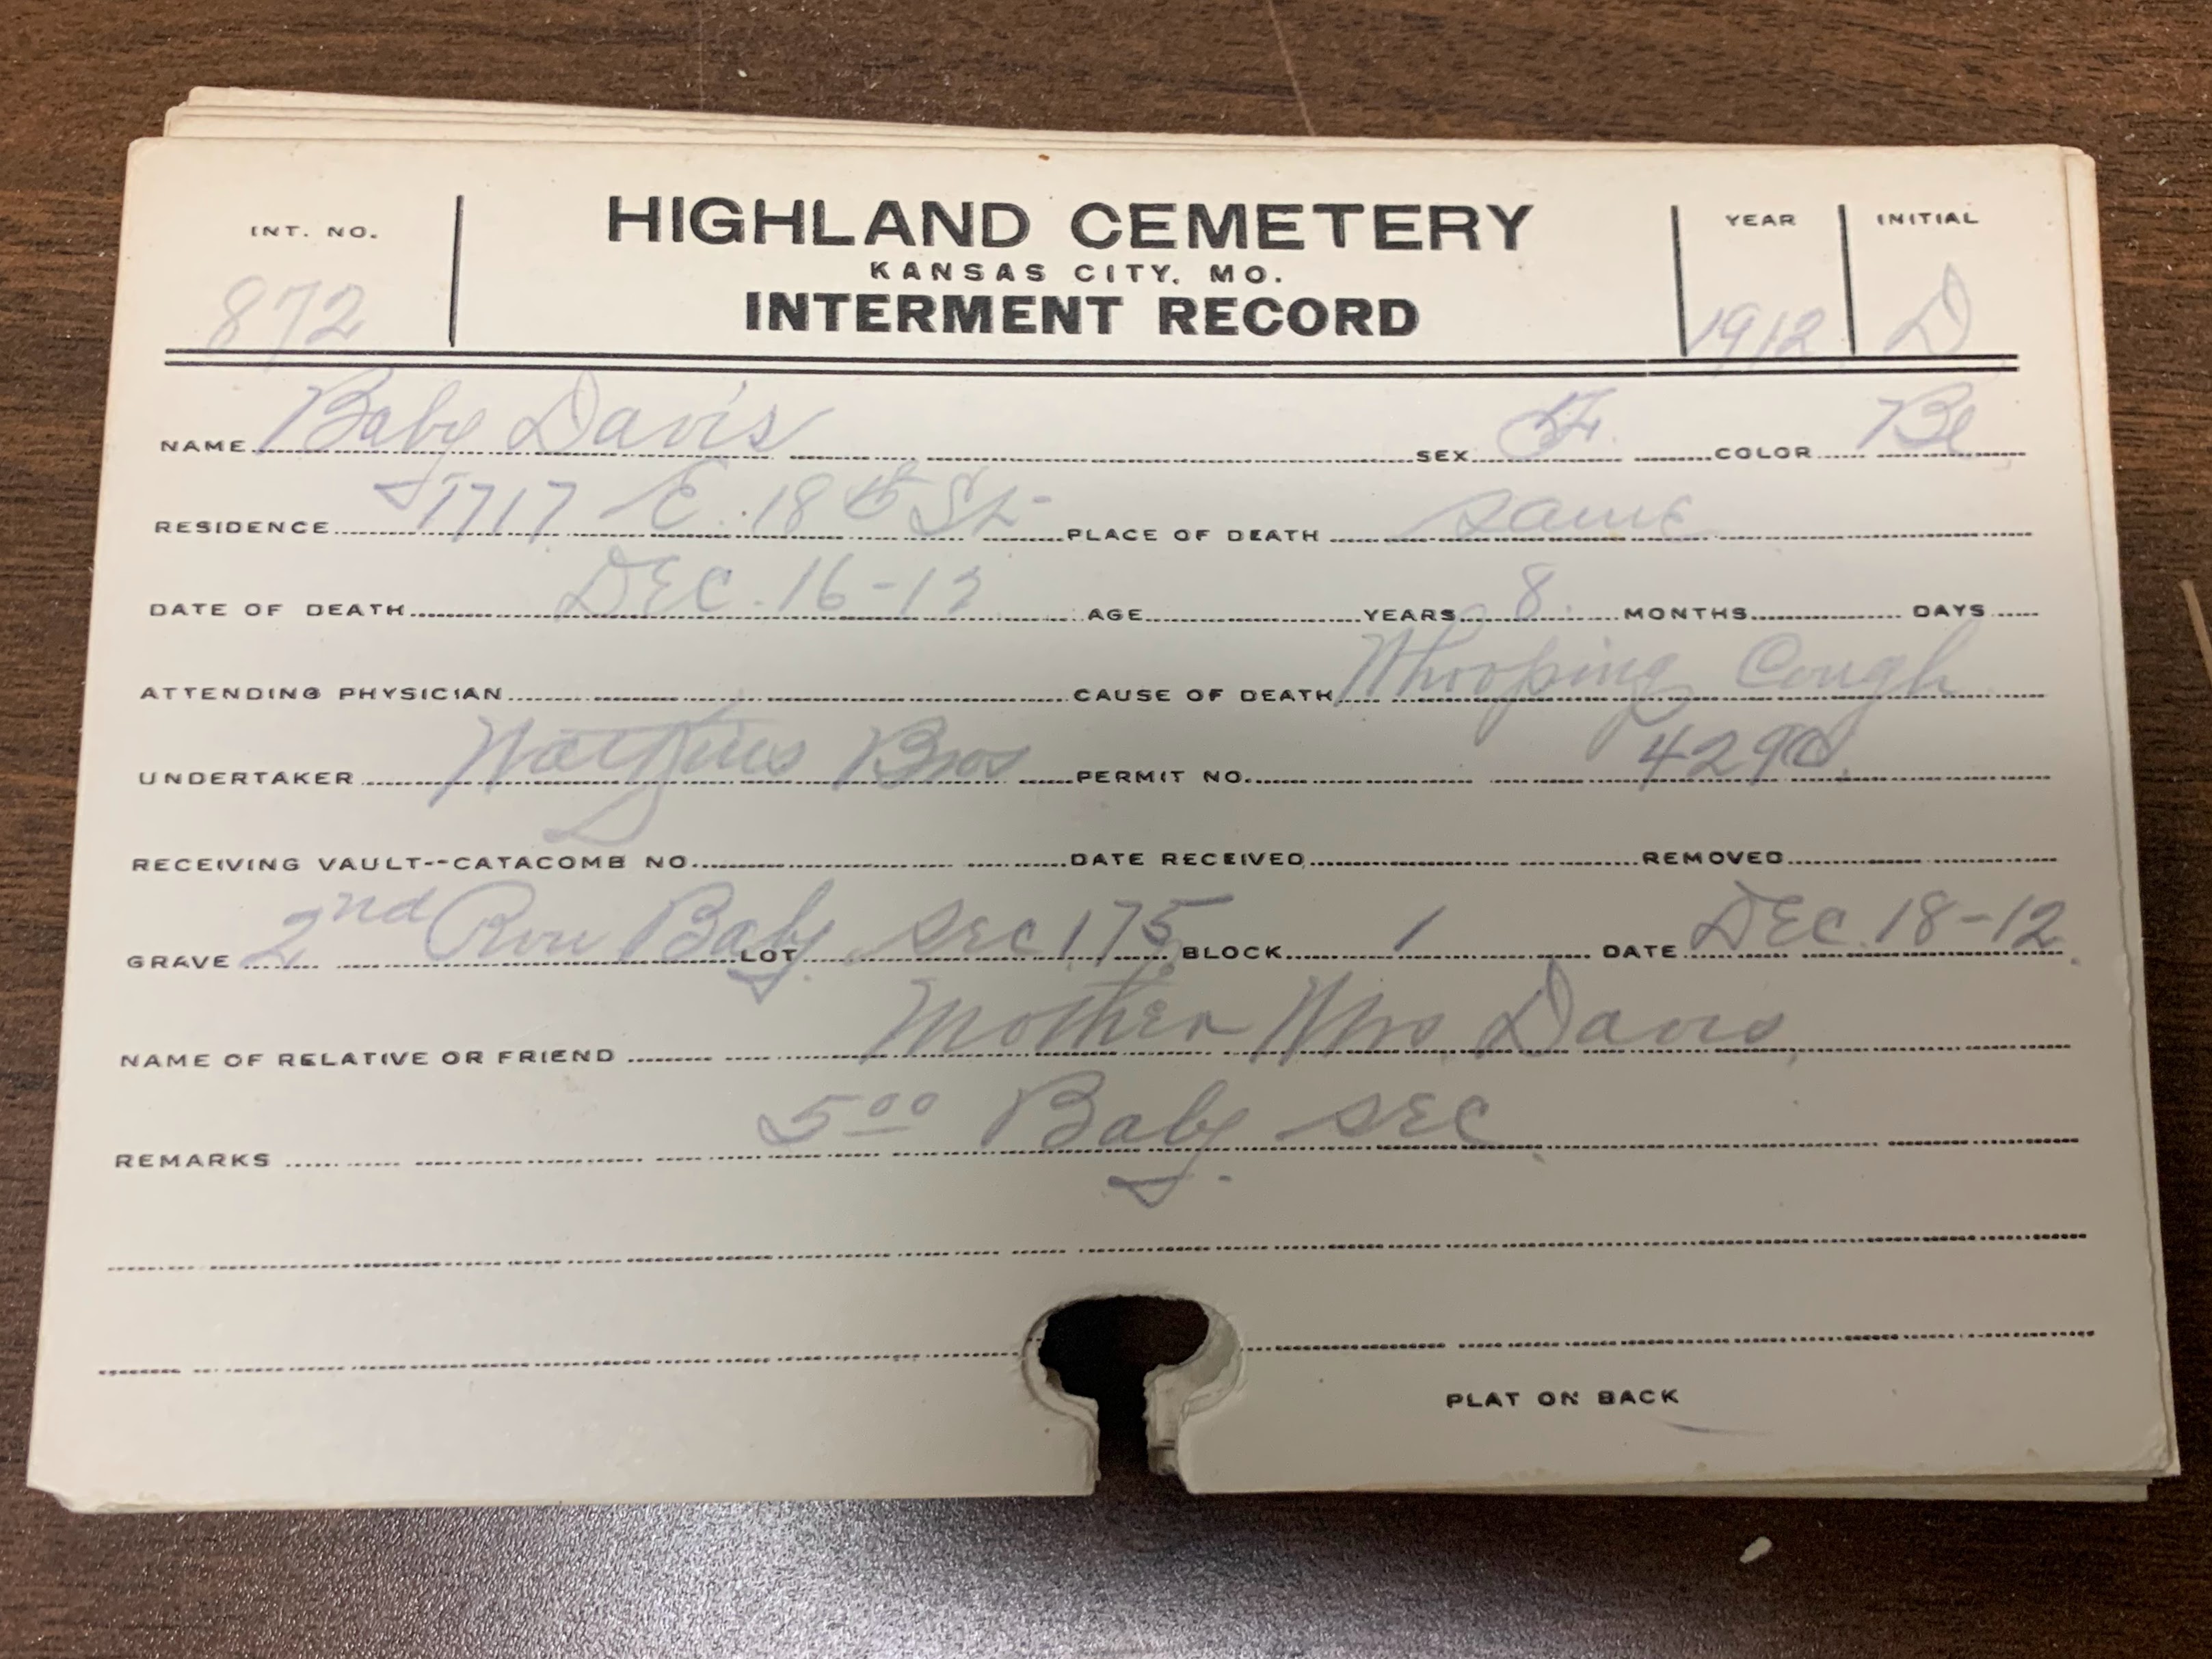 INT. NO. HIGHLAND CEMETERY YEAR INITIAL
KANSAS CITY, MO.
872 INTERMENT RECORD 1912 D
NAME Baby Davis SEX F. COLOR Bl
RESIDENCE 1717 E. 18th St- PLACE OF DEATH same
DATE OF DEATH DEC. 16-12 AGE YEARS 8. MONTHS DAYS
ATTENDING PHYSICIAN CAUSE OF DEATH Whooping Cough
UNDERTAKER Watkins Bros PERMIT NO.
RECEIVING VAULT--CATACOMB NO. DATE RECEIVED REMOVED
GRAVE 2nd Row Baby LOT Sec 175 BLOCK 1 DATE DEC. 18-12
NAME OF RELATIVE OR FRIEND Mother Mrs. Davis,
REMARKS 5 00 Baby SEC
PLAT ON BACK